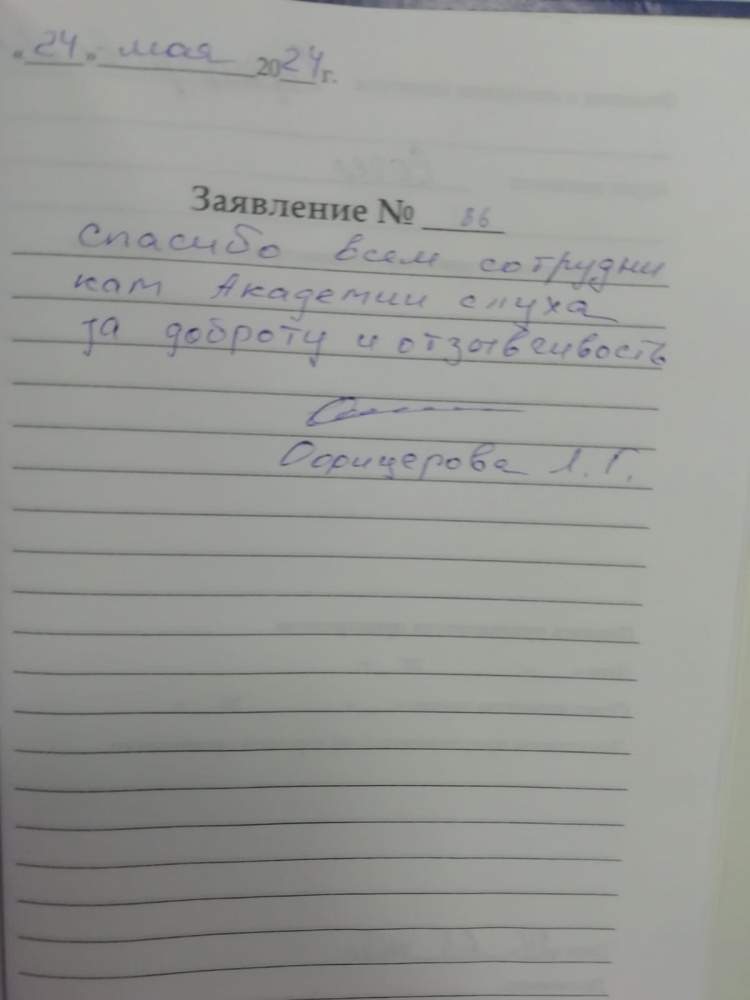 "24" мая 2024 г.
Заявление № 86
Спасибо всем сотрудни
кам Академии слуха
за доброту и отзывчивость
Офицерова Л.Г.